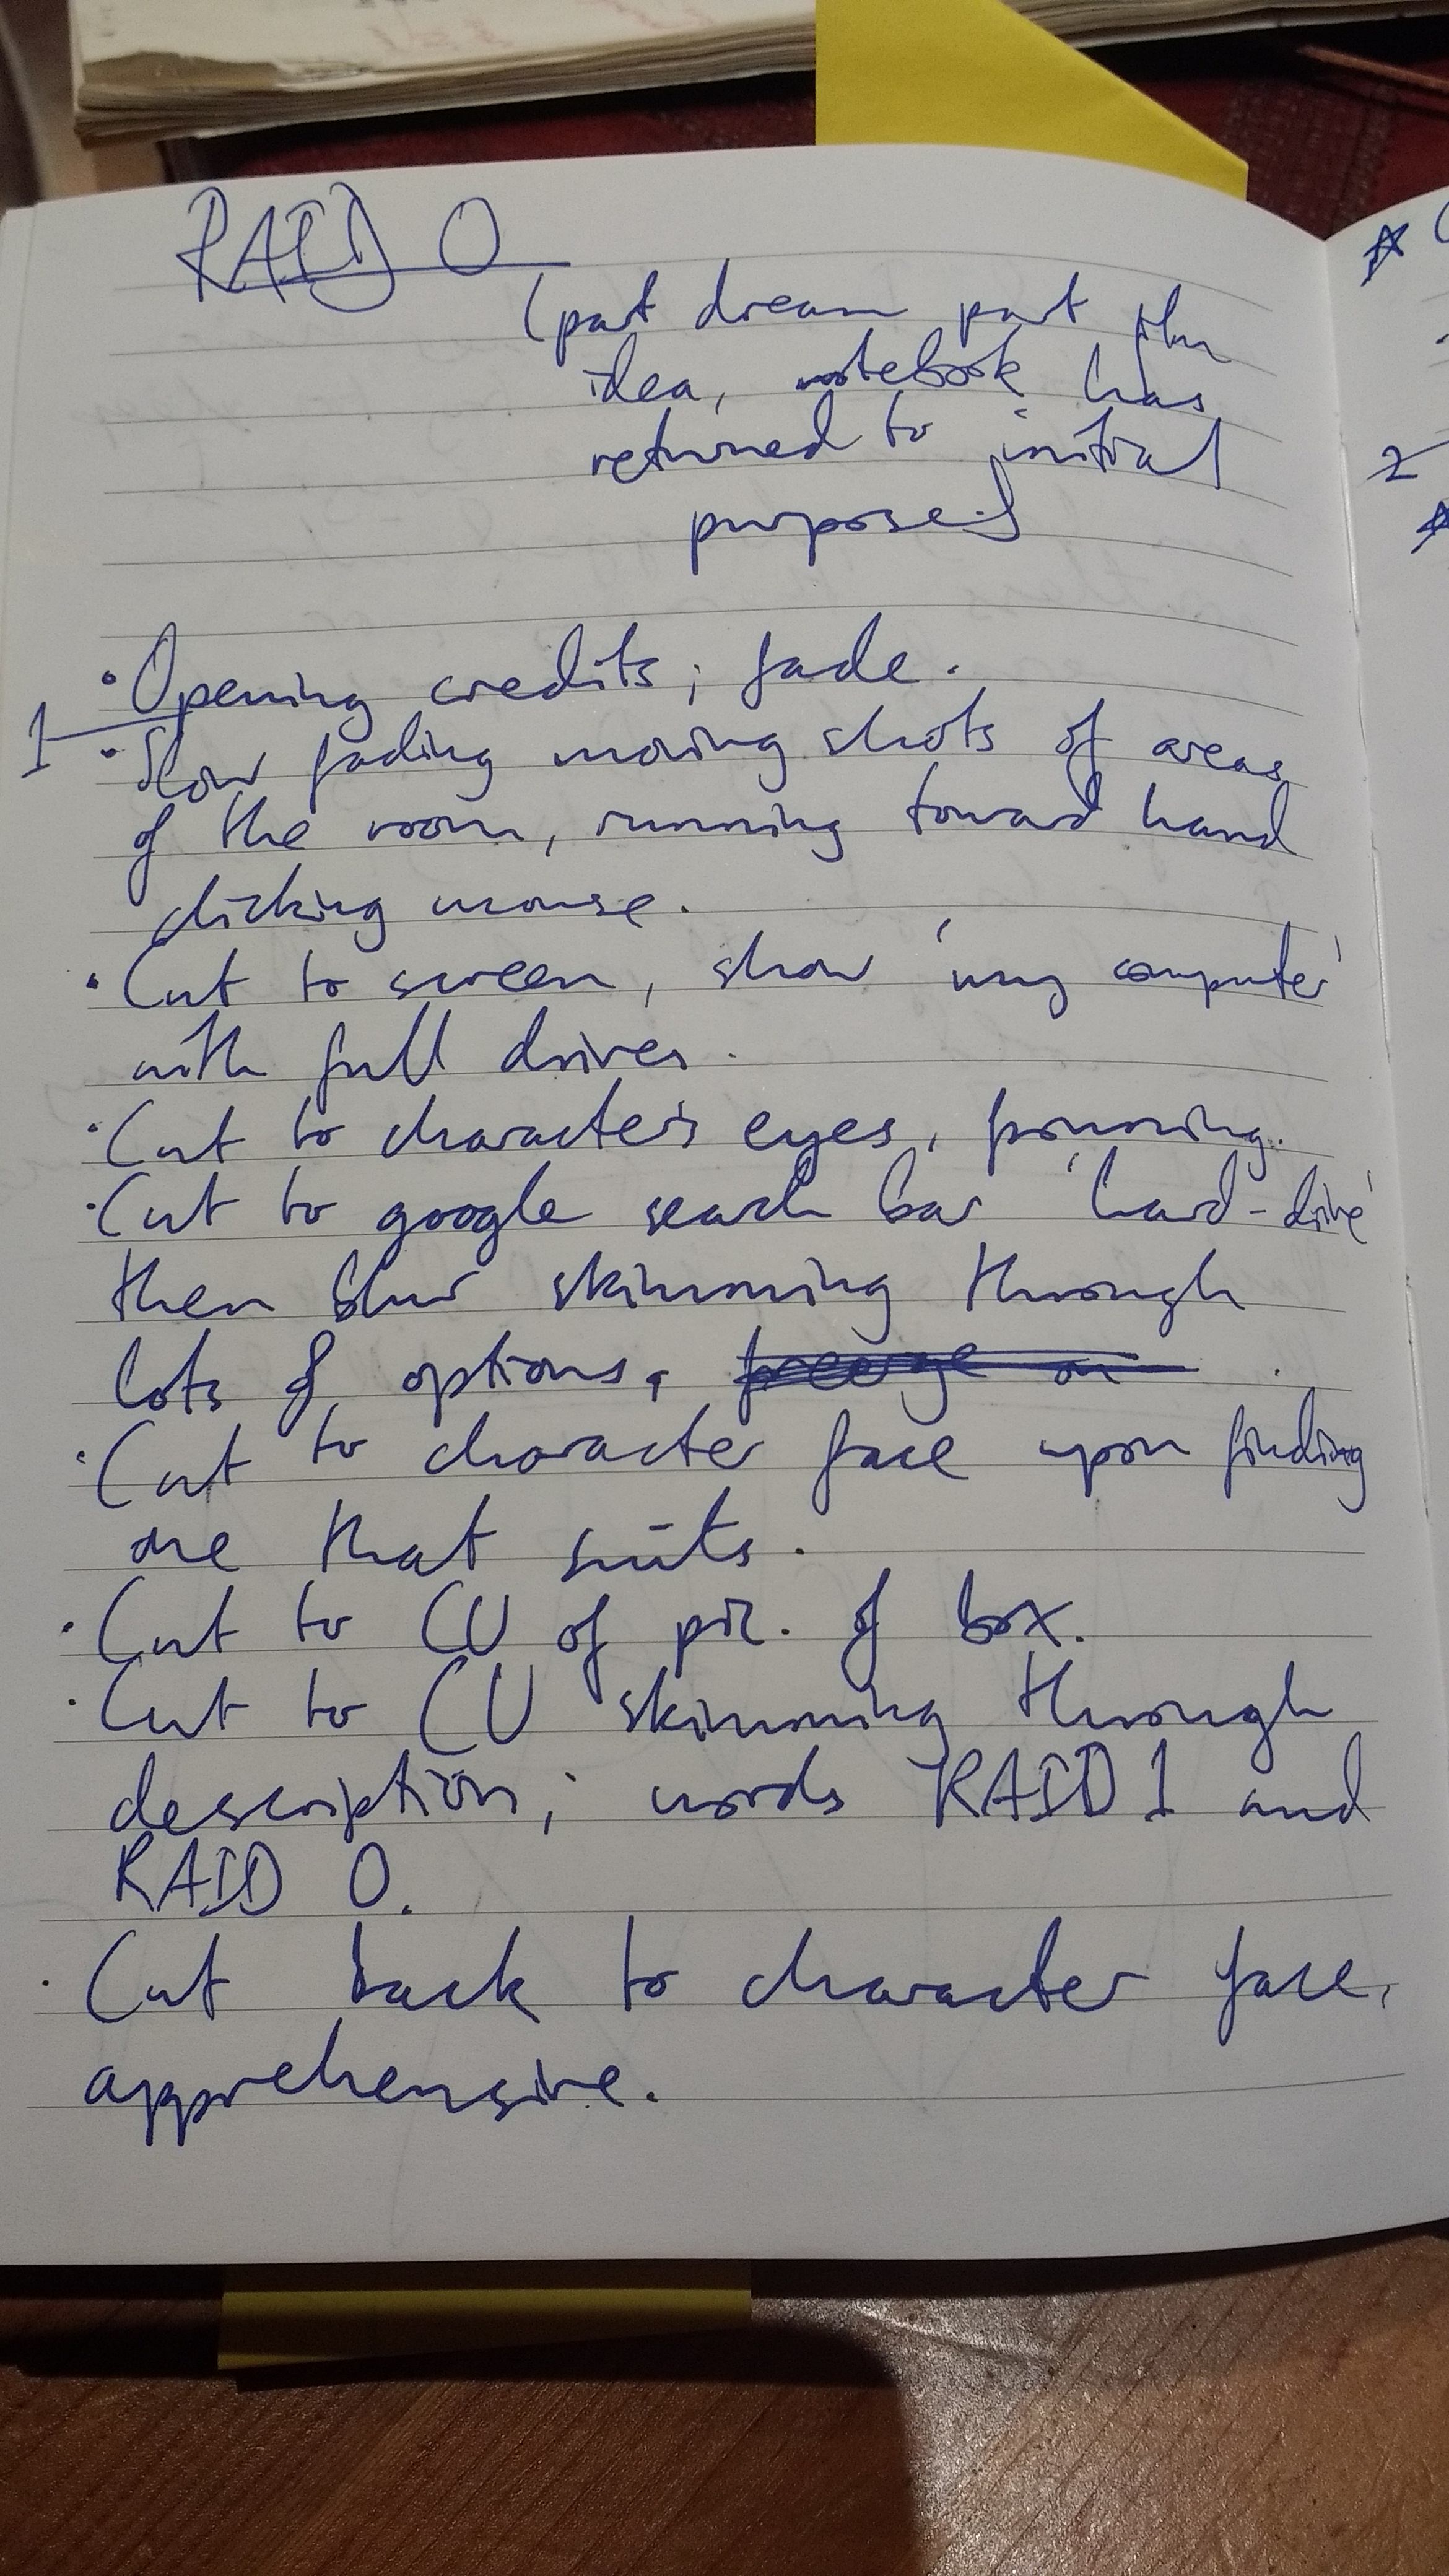 RAID 0
(part dream part film
idea, notebook has
returned to initial
purpose)
• Opening credits; fade.
1
• Slow fading moving shots of areas
of the room, running toward hand
clicking mouse.
• Cut to screen, show 'my computer'
with full drives.
• Cut to character's eyes, frowning.
• Cut to google search bar 'hard-drive'
then blur skimming through
lots of options.
• Cut to character face upon finding
one that suits.
• Cut to CU of pic. of box.
• Cut to CU skimming through
description; words RAID 1 and
RAID 0.
• Cut back to character face,
apprehensive.
2